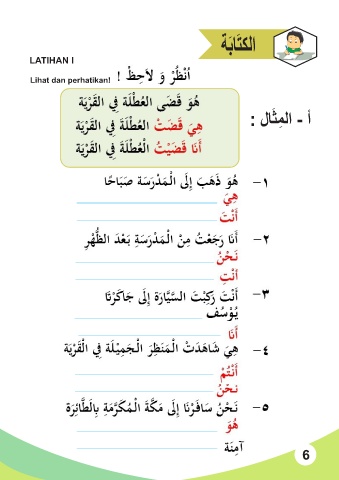 الكتَابَة
LATIHAN I
Lihat dan perhatikan! أُنْظُرْ وَ لاَحِظْ !
أ - المِثَال :
هُوَ قَضَى العُطْلَةَ فِي القَرْيَة
هِيَ قَضَتْ العُطْلَةَ فِي القَرْيَة
أَنَا قَضَيْتُ الْعُطْلَةَ فِي القَرْيَة
١– هُوَ ذَهَبَ إِلَى الْمَدْرَسَة صَبَاحًا
هِيَ
أَنْتَ
٢– أَنَا رَجَعْتُ مِنْ الْمَدْرَسَةِ بَعْدَ الظُّهْرِ
نَحْنُ
أَنْتِ
٣– أَنْتَ رَكِبْتَ السَّيَّارَةَ إِلَى جَاكَرْتَا
يُوْسُف
أَنَا
٤– هِيَ شَاهَدَتْ الْمَنَظِرَ الْجَمِيْلَةَ فِي الْقَرْيَة
أَنْتُمْ
نَحْنُ
٥– نَحْنُ سَافَرْنَا إِلَى مَكَّةَ الْمُكَرَّمَةِ بِالطَّائِرَة
هُوَ
آمِنَة
6